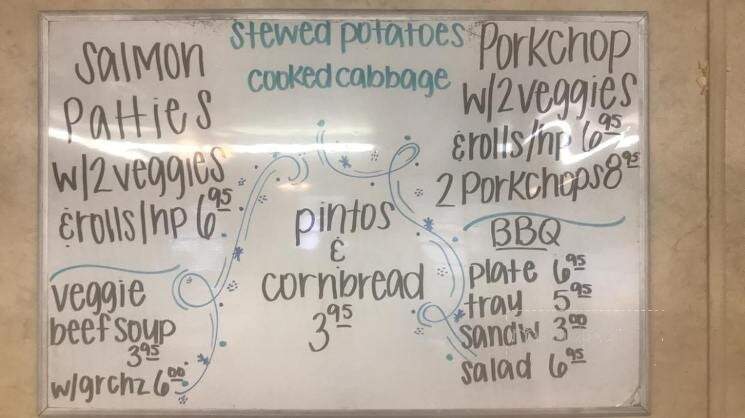 Salmon
Patties
w/2 veggies
& rolls/hp 6.95
veggie
beef soup
3.95
w/grchz 6.00
stewed potatoes
cooked cabbage
pintos
&
cornbread
3.95
Porkchop
w/2 veggies
& rolls/hp 6.95
2 Porkchops 8.95
BBQ
plate 6.95
tray 5.95
sandw 3.00
salad 6.95